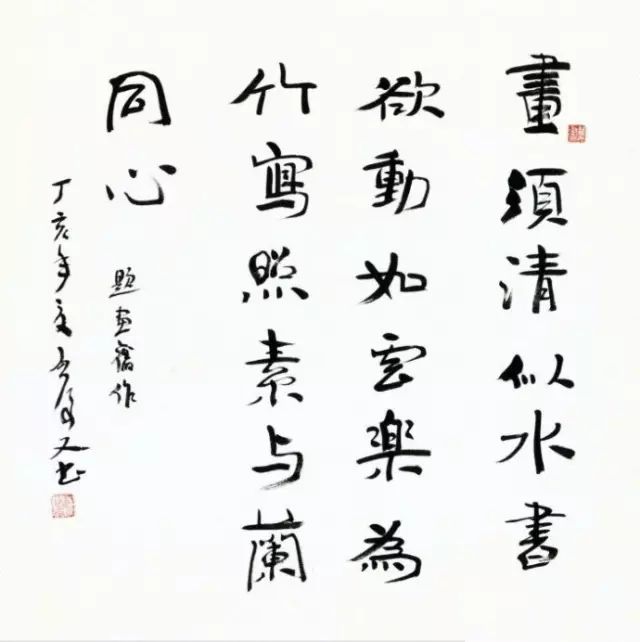 畫須清似水書
欲動如雲樂為
竹寫照素与蘭
同心
題畫舊作
丁亥年夏又书